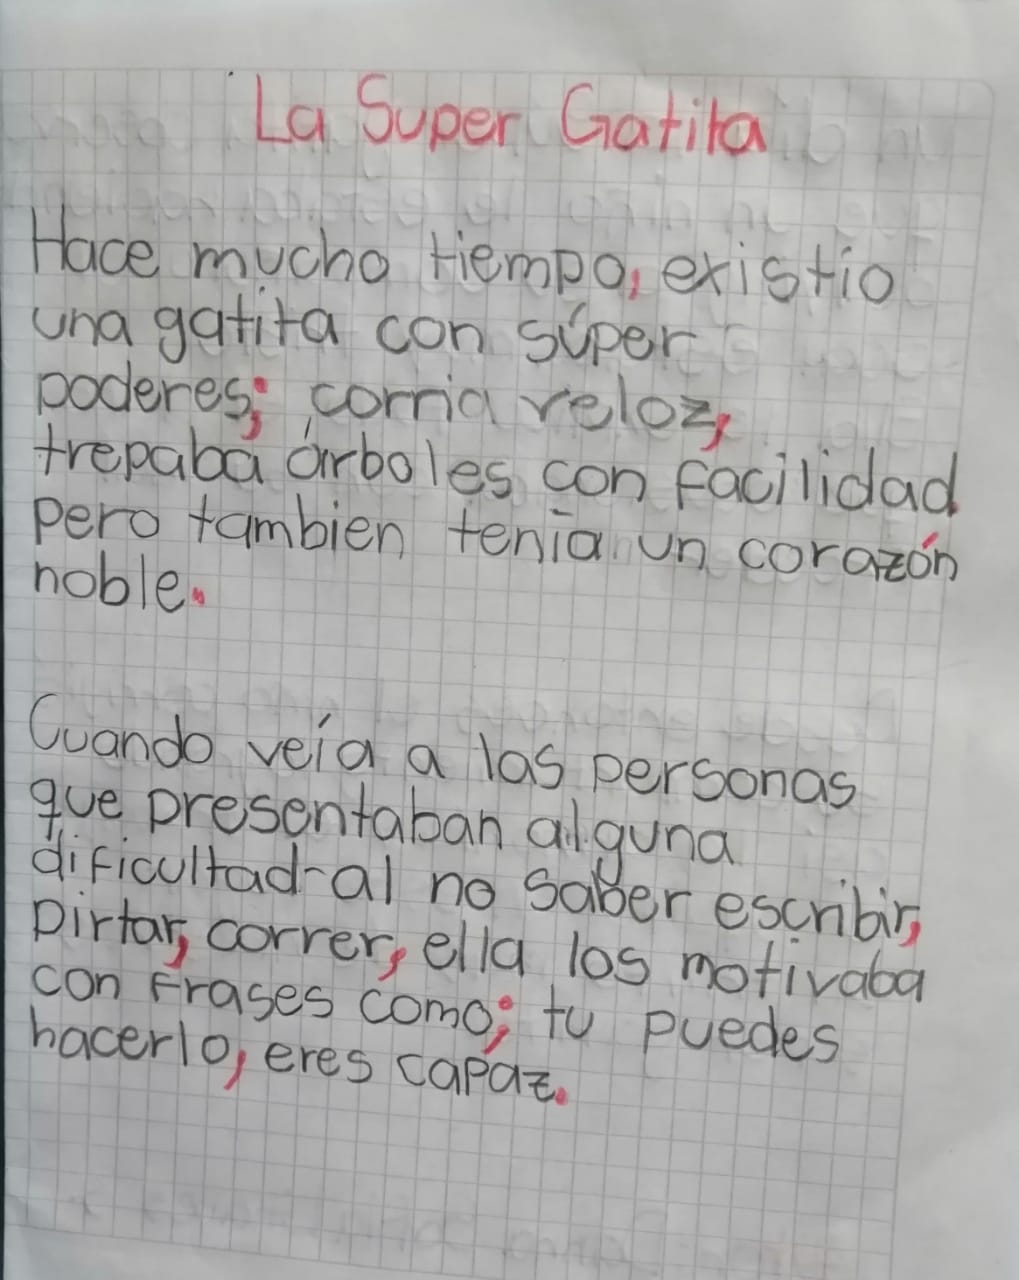 La Super Gatita
Hace mucho tiempo, existio
una gatita con súper
poderes; corria veloz,
trepaba árboles con facilidad
pero tambien tenía un corazón
noble.
Cuando veía a las personas
que presentaban alguna
dificultad-al no saber escribir,
Pirtar, correr, ella los motivaba
con frases como; tu puedes
hacerlo, eres capáz.